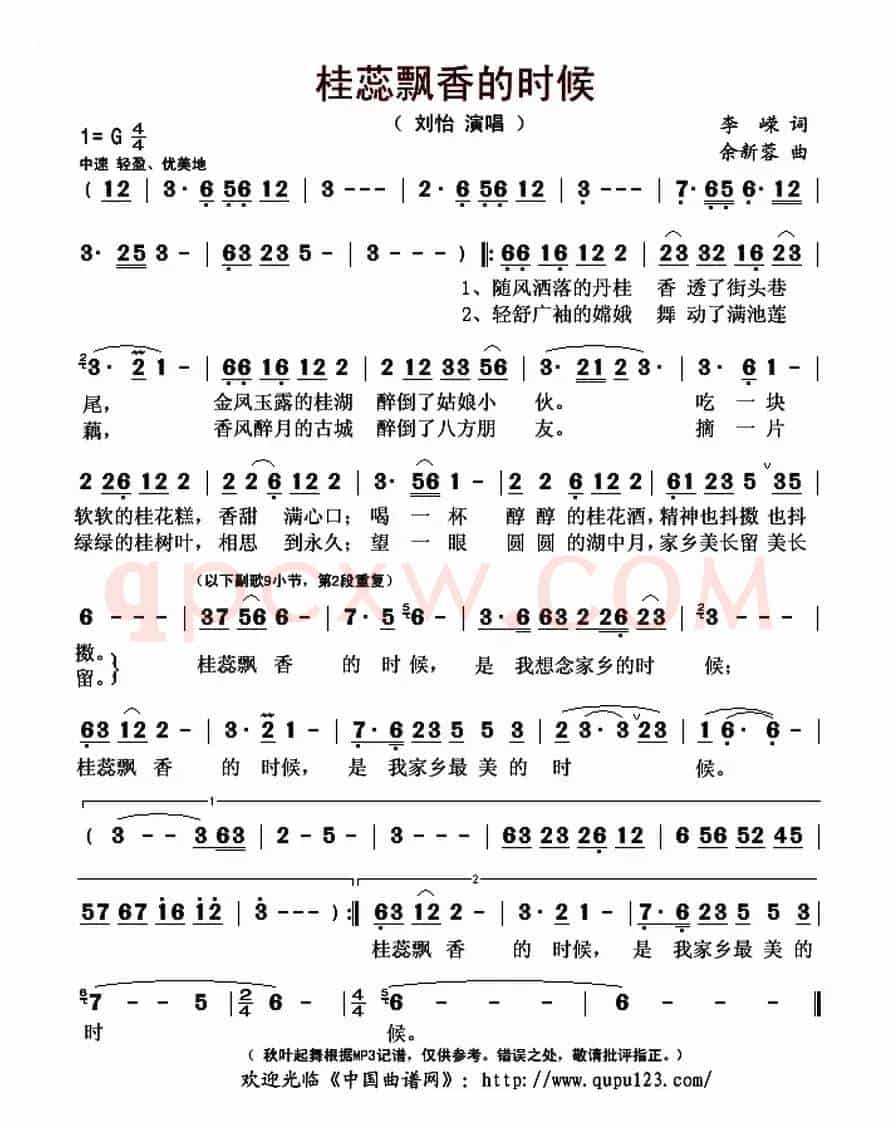 桂蕊飘香的时候
（ 刘怡 演唱 ）
李 嵘 词
1= G 4/4
余新蓉 曲
中速 轻盈、优美地
( 12 | 3· 6 56 12 | 3 - - - | 2· 6 56 12 | 3 - - - | 7· 65 6· 12 |
3· 25 3 - | 63 23 5 - | 3 - - - ) |: 66 16 12 2 | 23 32 16 23 |
1、随风洒落的丹桂 香 透了街头巷
2、轻舒广袖的嫦娥 舞 动了满池莲
2 3· 2 1 - | 66 16 12 2 | 2 12 33 56 | 3· 21 2 3· | 3· 6 1 - |
尾， 金风玉露的桂湖 醉倒了姑娘小 伙。 吃 一 块
藕， 香风醉月的古城 醉倒了八方朋 友。 摘 一 片
2 26 12 2 | 2 2 6 12 2 | 3· 56 1 - | 2 2 6 12 2 | 61 23 5 ∨ 35 |
软软的桂花糕，香甜 满心口；喝 一 杯 醇 醇 的桂花酒，精神也抖擞 也抖
绿绿的桂树叶，相思 到永久；望 一 眼 圆 圆 的湖中月，家乡美长留 美长
（以下副歌9小节，第2段重复）
6 - - - | 37 56 6 - | 7· 5 5 6 - | 3· 6 63 2 26 23 | 2 3 - - - |
擞。 桂蕊飘 香 的 时 候， 是 我想念家乡的时 候；
留。
63 12 2 - | 3· 2 1 - | 7· 6 23 5 5 | 2 3· 3 ∨ 23 | 1 6· 6 - |
桂蕊飘 香 的 时候， 是 我家乡最 美 的 时 候。
1
( 3 - - 3 63 | 2 - 5 - | 3 - - - | 63 23 26 12 | 6 56 52 45 |
2
57 67 16 12 | 3 - - - ) :| 63 12 2 - | 3· 2 1 - | 7· 6 23 5 5 3 |
桂蕊飘 香 的 时候， 是 我家乡最 美 的
6 7 - - 5 | 2/4 6 - | 4/4 5 6 - - - | 6 - - - ||
时 候。
（ 秋叶起舞根据MP3记谱，仅供参考。错误之处，敬请批评指正。）
欢迎光临《中国曲谱网》：http://www.qupu123.com/
qpcxw.COM